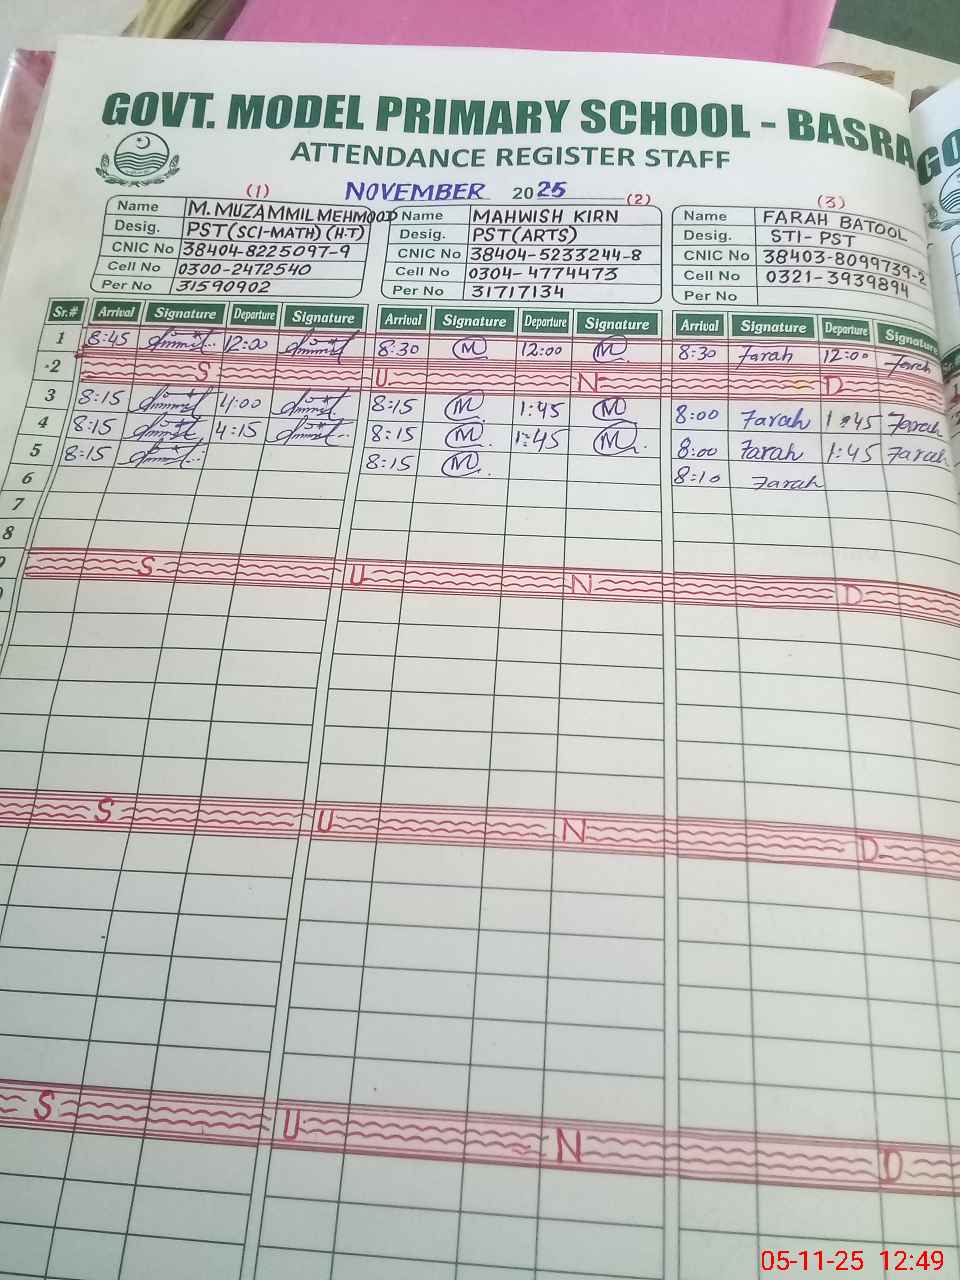 GOVT. MODEL PRIMARY SCHOOL - BASRA
GO
ATTENDANCE REGISTER STAFF
NOVEMBER 2025
(1) (2) (3)
Name M. MUZAMMIL MEHMOOD Name MAHWISH KIRN Name FARAH BATOOL
Desig. PST (SCI-MATH) (H.T) Desig. PST (ARTS) Desig. STI- PST
CNIC No 38404-8225097-9 CNIC No 38404-5233244-8 CNIC No 38403-8099739-2
Cell No 0300-2472540 Cell No 0304-4774473 Cell No 0321-3939894
Per No 31590902 Per No 31717134 Per No
Sr.# Arrival Signature Departure Signature Arrival Signature Departure Signature Arrival Signature Departure Signature
1 8:45 12:00 8:30 M 12:00 M 8:30 Farah 12:00 Farah
2 S U N D
3 8:15 4:00 8:15 M 1:45 M 8:00 Farah 1:45 Farah
4 8:15 4:15 8:15 M 1:45 M 8:00 Farah 1:45 Farah
5 8:15 8:15 M 8:10 Farah
6
7
8
9 S U N D
S U N D
S U N D
05-11-25 12:49